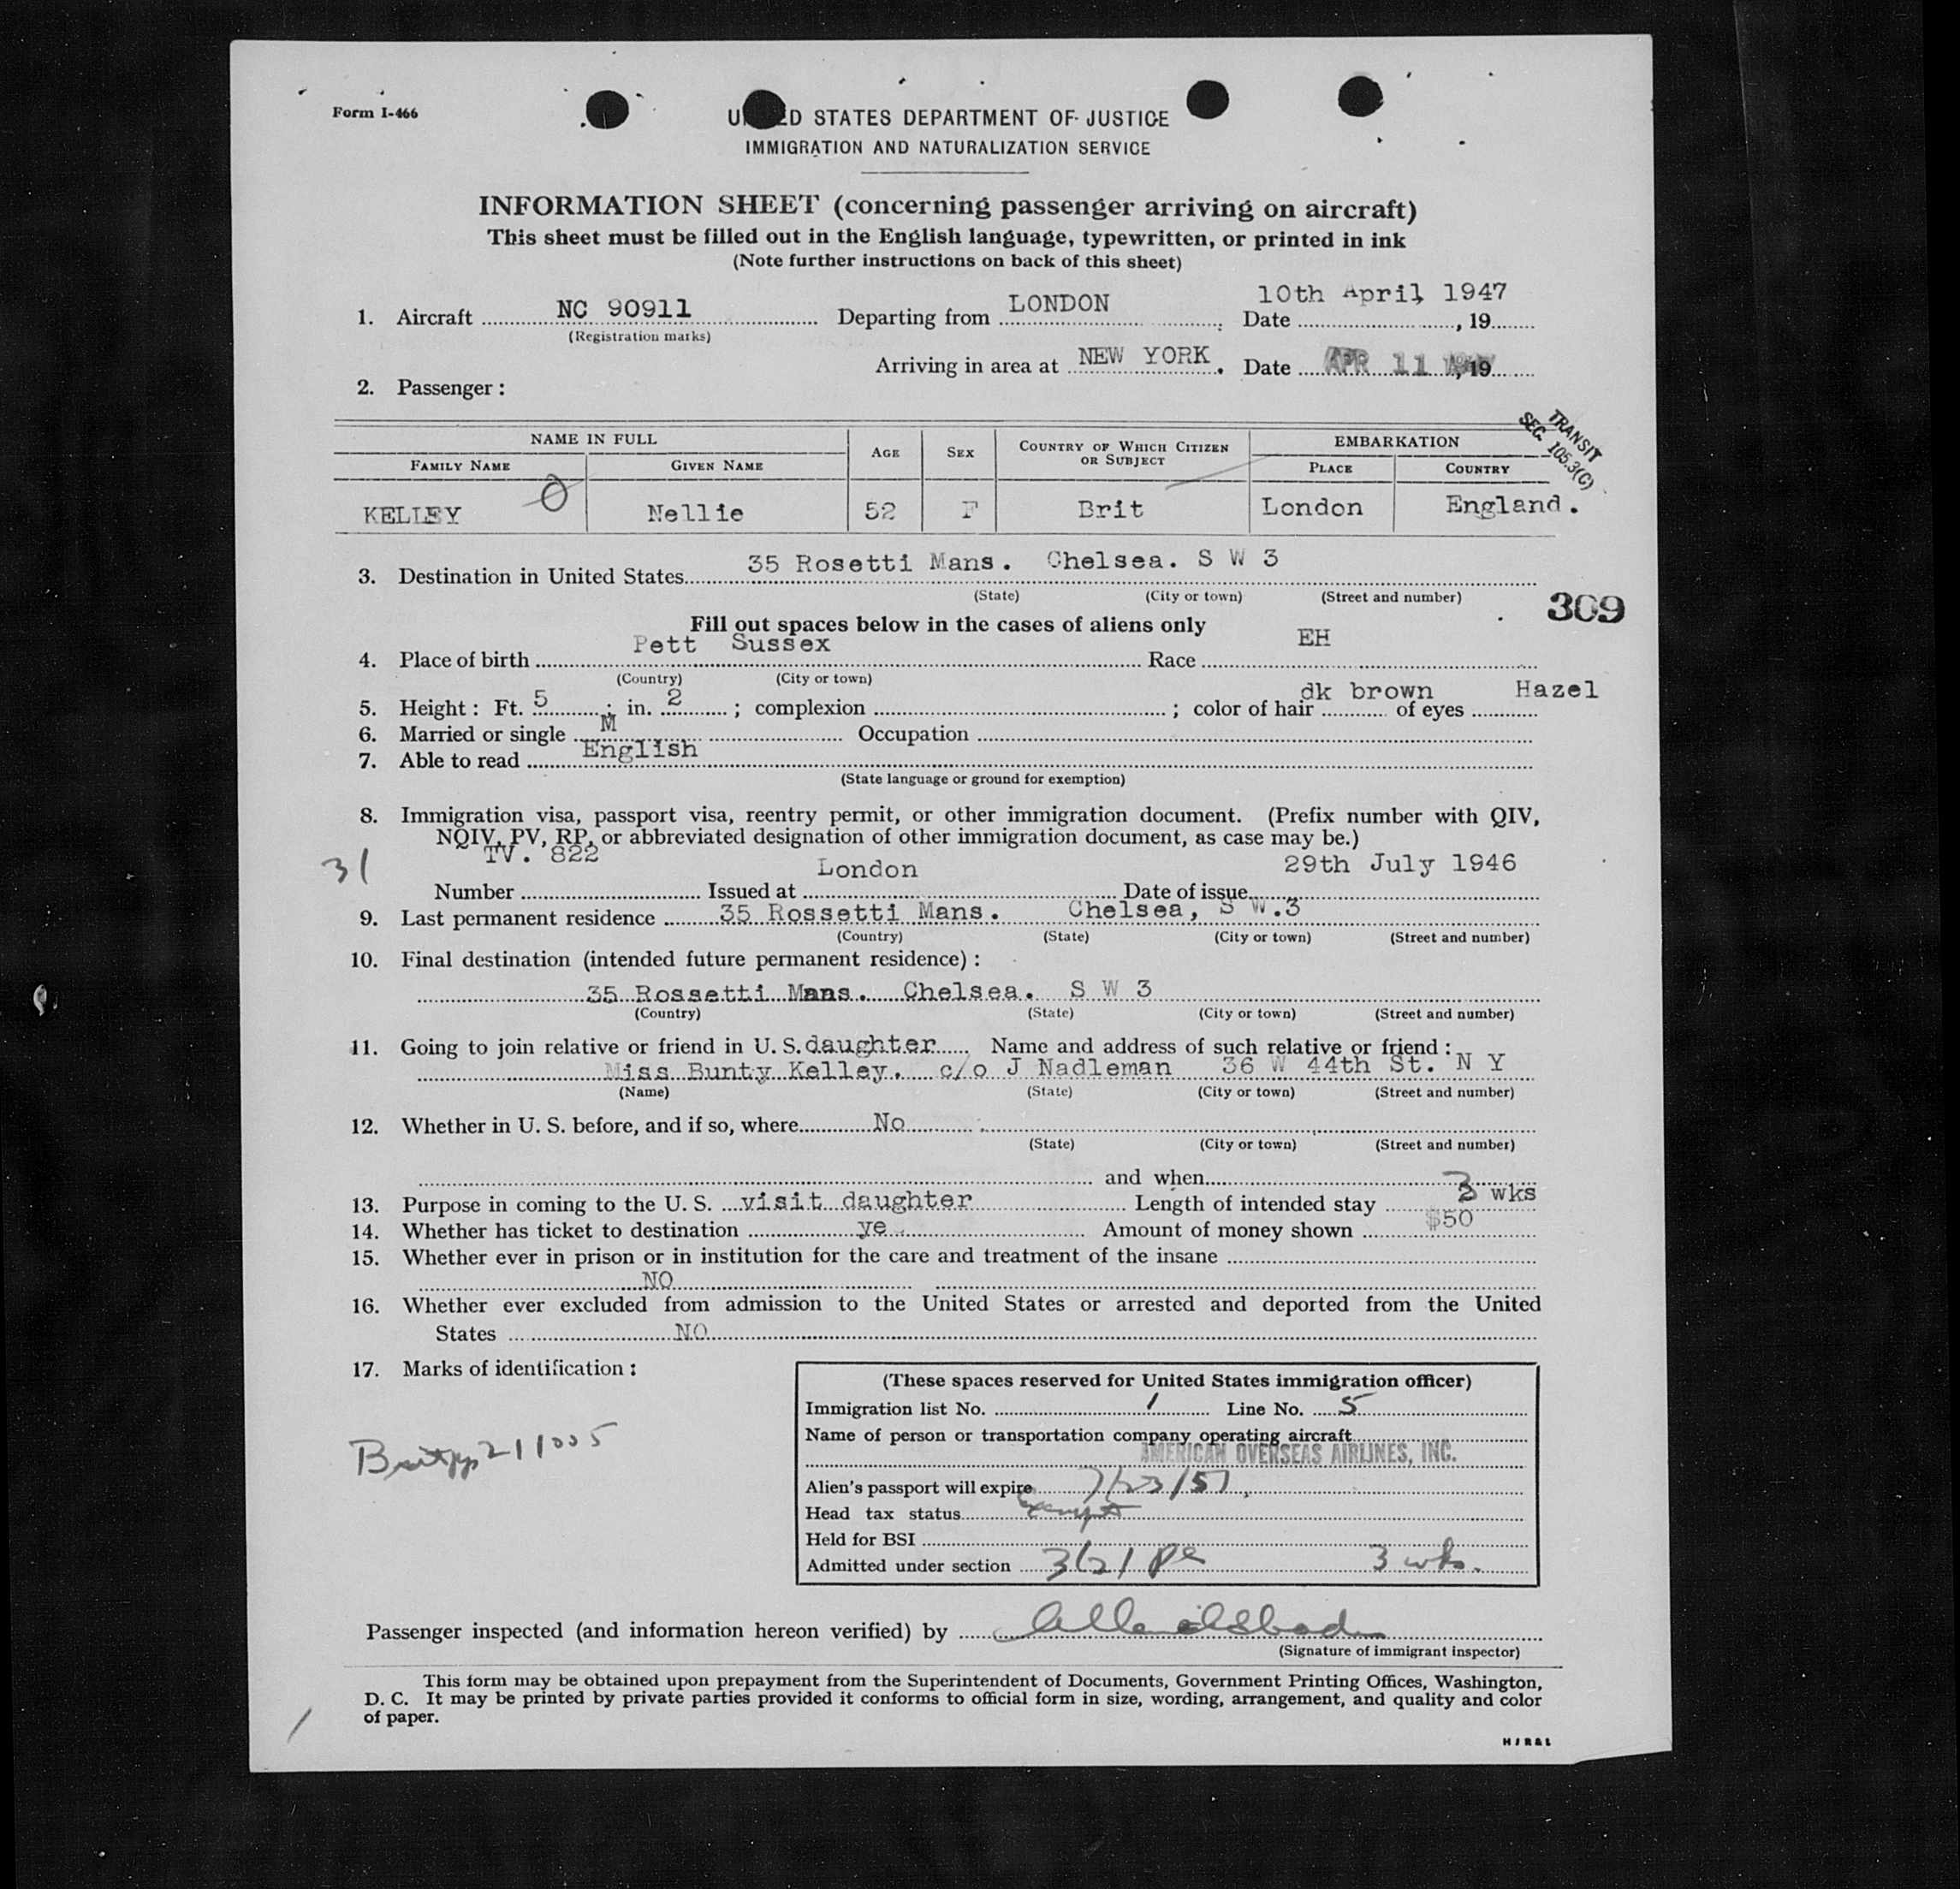 Form I-466
UNITED STATES DEPARTMENT OF JUSTICE
IMMIGRATION AND NATURALIZATION SERVICE
INFORMATION SHEET (concerning passenger arriving on aircraft)
This sheet must be filled out in the English language, typewritten, or printed in ink
(Note further instructions on back of this sheet)
10th April, 1947
1. Aircraft NC 90911 Departing from LONDON Date , 19
(Registration marks)
Arriving in area at NEW YORK. Date APR 11 , 19
2. Passenger:
TRANSIT
SEC. 105.3(C)
NAME IN FULL AGE SEX COUNTRY OF WHICH CITIZEN OR SUBJECT EMBARKATION
FAMILY NAME GIVEN NAME PLACE COUNTRY
KELLEY Nellie 52 F Brit London England.
3. Destination in United States 35 Rosetti Mans. Chelsea. S W 3
(State) (City or town) (Street and number)
309
Fill out spaces below in the cases of aliens only
4. Place of birth Pett Sussex Race EH
(Country) (City or town)
5. Height: Ft. 5 ; in. 2 ; complexion ; color of hair dk brown of eyes Hazel
6. Married or single M Occupation
7. Able to read English
(State language or ground for exemption)
8. Immigration visa, passport visa, reentry permit, or other immigration document. (Prefix number with QIV,
NQIV, PV, RP, or abbreviated designation of other immigration document, as case may be.)
31
Number TV. 822 Issued at London Date of issue 29th July 1946
9. Last permanent residence 35 Rossetti Mans. Chelsea, S W.3
(Country) (State) (City or town) (Street and number)
10. Final destination (intended future permanent residence):
35 Rossetti Mans. Chelsea. S W 3
(Country) (State) (City or town) (Street and number)
11. Going to join relative or friend in U. S. daughter Name and address of such relative or friend:
Miss Bunty Kelley. c/o J Nadleman 36 W 44th St. N Y
(Name) (State) (City or town) (Street and number)
12. Whether in U. S. before, and if so, where No
(State) (City or town) (Street and number)
and when
13. Purpose in coming to the U. S. visit daughter Length of intended stay 3 wks
14. Whether has ticket to destination ye Amount of money shown $50
15. Whether ever in prison or in institution for the care and treatment of the insane
NO
16. Whether ever excluded from admission to the United States or arrested and deported from the United
States NO
17. Marks of identification:
(These spaces reserved for United States immigration officer)
Immigration list No. 1 Line No. 5
Name of person or transportation company operating aircraft
AMERICAN OVERSEAS AIRLINES, INC.
Alien's passport will expire 7/23/51
Head tax status exempt
Held for BSI
Admitted under section 3(2) 3 wks.
Passenger inspected (and information hereon verified) by
(Signature of immigrant inspector)
This form may be obtained upon prepayment from the Superintendent of Documents, Government Printing Offices, Washington,
D. C. It may be printed by private parties provided it conforms to official form in size, wording, arrangement, and quality and color
of paper.